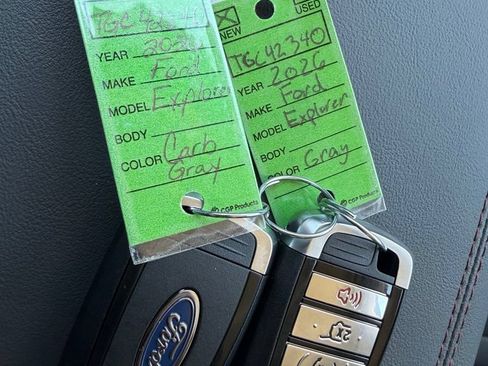 TGC42340
YEAR 2026
MAKE Ford
MODEL Explorer
BODY
COLOR Carb
Gray
CGP Products
NEW
USED
TGC42340
YEAR 2026
MAKE Ford
MODEL Explorer
BODY
COLOR Gray
CGP Products
Ford
2X